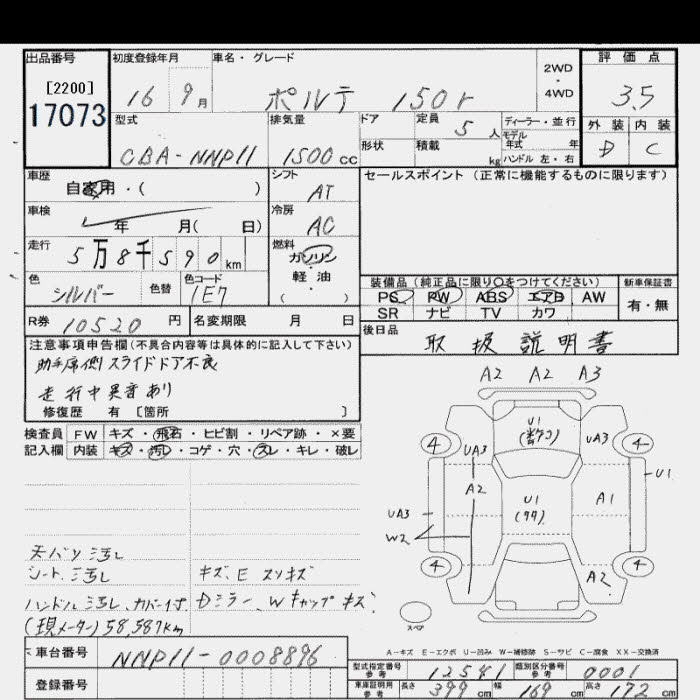 出品番号 初度登録年月 車名・グレード 2WD・4WD 評価点
[2200]
17073 16 9月 ポルテ 150r 3.5
型式 排気量 ドア 定員 5人 ディーラー・並行 外装 内装
モデル年式 年
CBA-NNP11 1500cc 形状 積載 kg ハンドル 左・右 D C
車歴 シフト セールスポイント(正常に機能するものに限ります)
自家用・( ) AT
車検 冷房
年 月( 日) AC
走行 5万8千590km 燃料 ガソリン
軽・油
( )
色 シルバー 色替 色コード 1E7 装備品(純正品に限り○をつけてください) 新車保証書
PS PW ABS エアB AW 有・無
SR ナビ TV カワ
R券 10520円 名変期限 月 日 後日品 取扱説明書
注意事項申告欄(不具合内容等は具体的に記入して下さい)
助手席側スライドドア不良
走行中異音あり
修復歴 有 [箇所 ]
検査員 FW キズ・飛石・ヒビ割・リペア跡・×要
記入欄 内装 キズ・汚レ・コゲ・穴・スレ・キレ・破レ
A2 A2 A3
U1
4 UA3 UA3 4
U1
A2 U1 A1
UA3
W2
4 A2 4
天バリ汚レ
シート汚レ キズ、E スリキズ
ハンドル汚レ、カバー付 Dミラー、Wキャップキズ
(現メーター)58,587km
スペア
A-キズ E-エクボ U-凹み W-補修跡 S-サビ C-腐食 XX-交換済
車台番号 NNP11-0008896
登録番号
型式指定番号 参考 12541 類別区分番号 参考 0001
車庫証明用 参考 長さ 399cm 幅 169cm 高さ 172cm